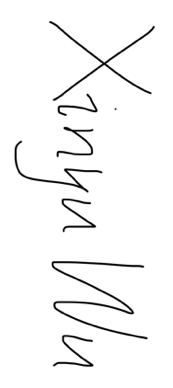 Xinyu Wu